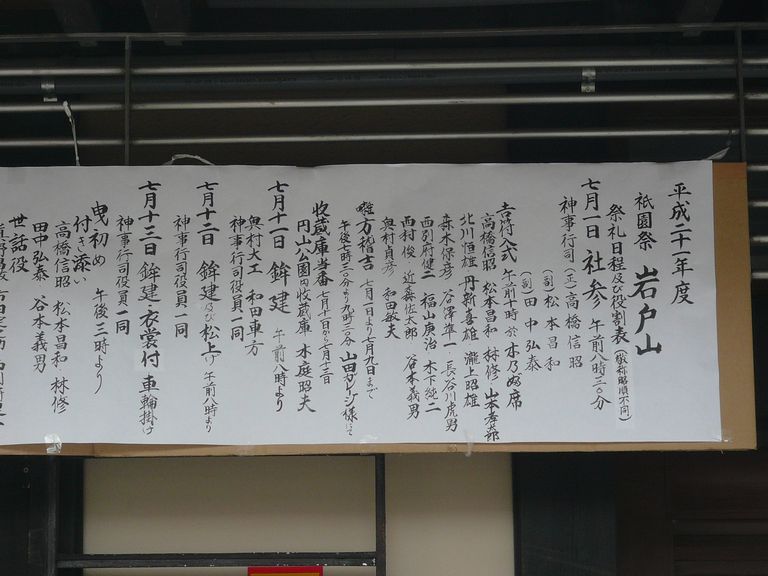 平成二十一年度
祇園祭 岩戸山
祭礼日程及び役割表(敬称略順不同)
七月一日 社参 午前八時三〇分
神事行司 (正)高橋信昭
(副)松本昌和
(副)田中弘泰
吉符入式 午前十時 於 木乃婦席
高橋信昭 松本昌和 林修
北川恒雄 丹新喜雄 瀧上昭雄
森本保彦 谷澤準一 長谷川虎男
西別府健二 福山庚治 木下純二
西村俊 近藤佐太郎 谷本義男
奥村貞彦 和田敏夫
囃方稽古 七月二日より七月九日まで
午後七時三〇分より九時三〇分 山田ガレージ様にて
収蔵庫当番 七月十一日から七月十三日
円山公園内収蔵庫 木庭昭夫
七月十一日 鉾建 午前八時より
奥村大工 和田車方
神事行司役員一同
七月十二日 鉾建及び松上げ 午前八時より
神事行司役員一同
七月十三日 鉾建・衣裳付 車輪掛け
神事行司役員一同
曳初め 午後三時より
付き添い
高橋信昭 松本昌和 林修
田中弘泰 谷本義男
世話役